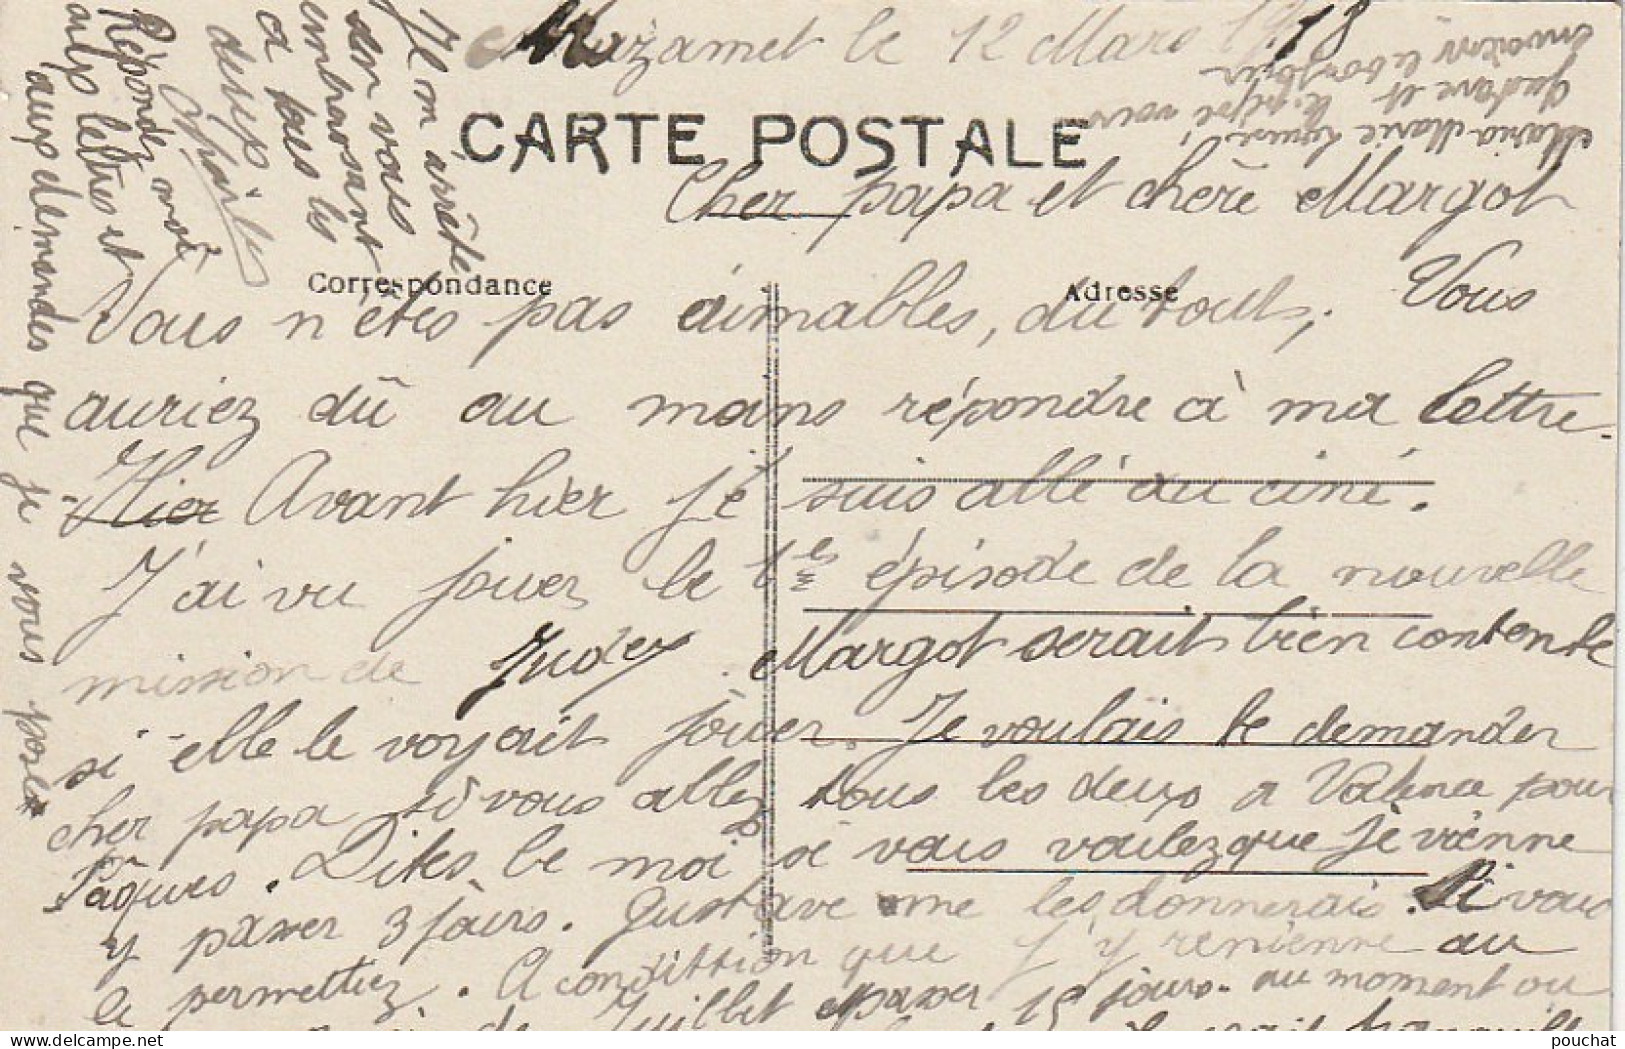 Mazamet le 12 Mars 1918
CARTE POSTALE
Cher papa et chère Margot
Correspondance
Adresse
Vous n'êtes pas aimables, du tout, Vous
auriez dû au moins répondre à ma lettre.
Hier Avant hier je suis allé au ciné.
J'ai vu jouer le 1er épisode de la nouvelle
mission de Judex. Margot serait bien contente
si elle le voyait jouer. Je voulais te demander
cher papa si vous allez tous les deux a Valence pour
Pâques. Dites le moi si vous voulez que je vienne
y passer 3 jours. Gustave me les donnerais. Si vous
le permettiez. A condittion que j'y revienne au
de Juillet passer 15 jours. au moment ou
Je m'arrête
en vous
embrassant
a tous les
deux
Charles
Répondez moi
aux lettres et
aux demandes que je vous pose
Maria Marie Louise,
Gustave et
envoient le bonjour